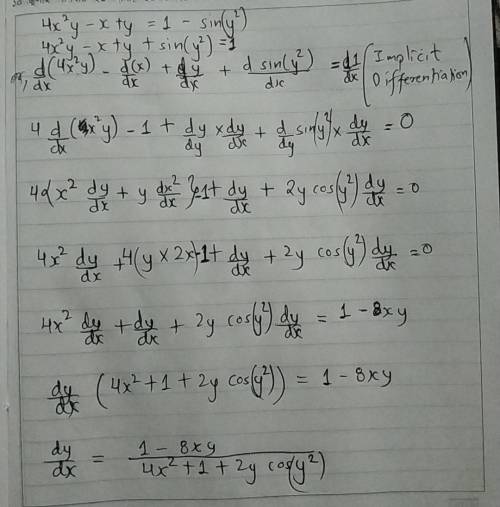 4x²y - x + y = 1 - sin(y²)
4x²y - x + y + sin(y²) = 1
d/dx (4x²y) - d(x)/dx + dy/dx + d sin(y²)/dx = d1/dx (Implicit Differentiation)
4 d/dx (x²y) - 1 + dy/dy × dy/dx + d/dy sin(y²) × dy/dx = 0
4{x² dy/dx + y dx²/dx} - 1 + dy/dx + 2y cos(y²) dy/dx = 0
4x² dy/dx + 4(y × 2x) - 1 + dy/dx + 2y cos(y²) dy/dx = 0
4x² dy/dx + dy/dx + 2y cos(y²) dy/dx = 1 - 8xy
dy/dx (4x² + 1 + 2y cos(y²)) = 1 - 8xy
dy/dx = 1 - 8xy / 4x² + 1 + 2y cos(y²)